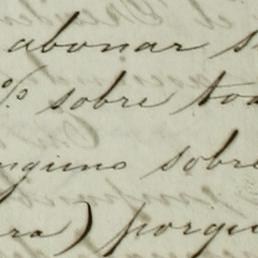 abonar s
% sobre toa
nguno sobre
ra) porqu